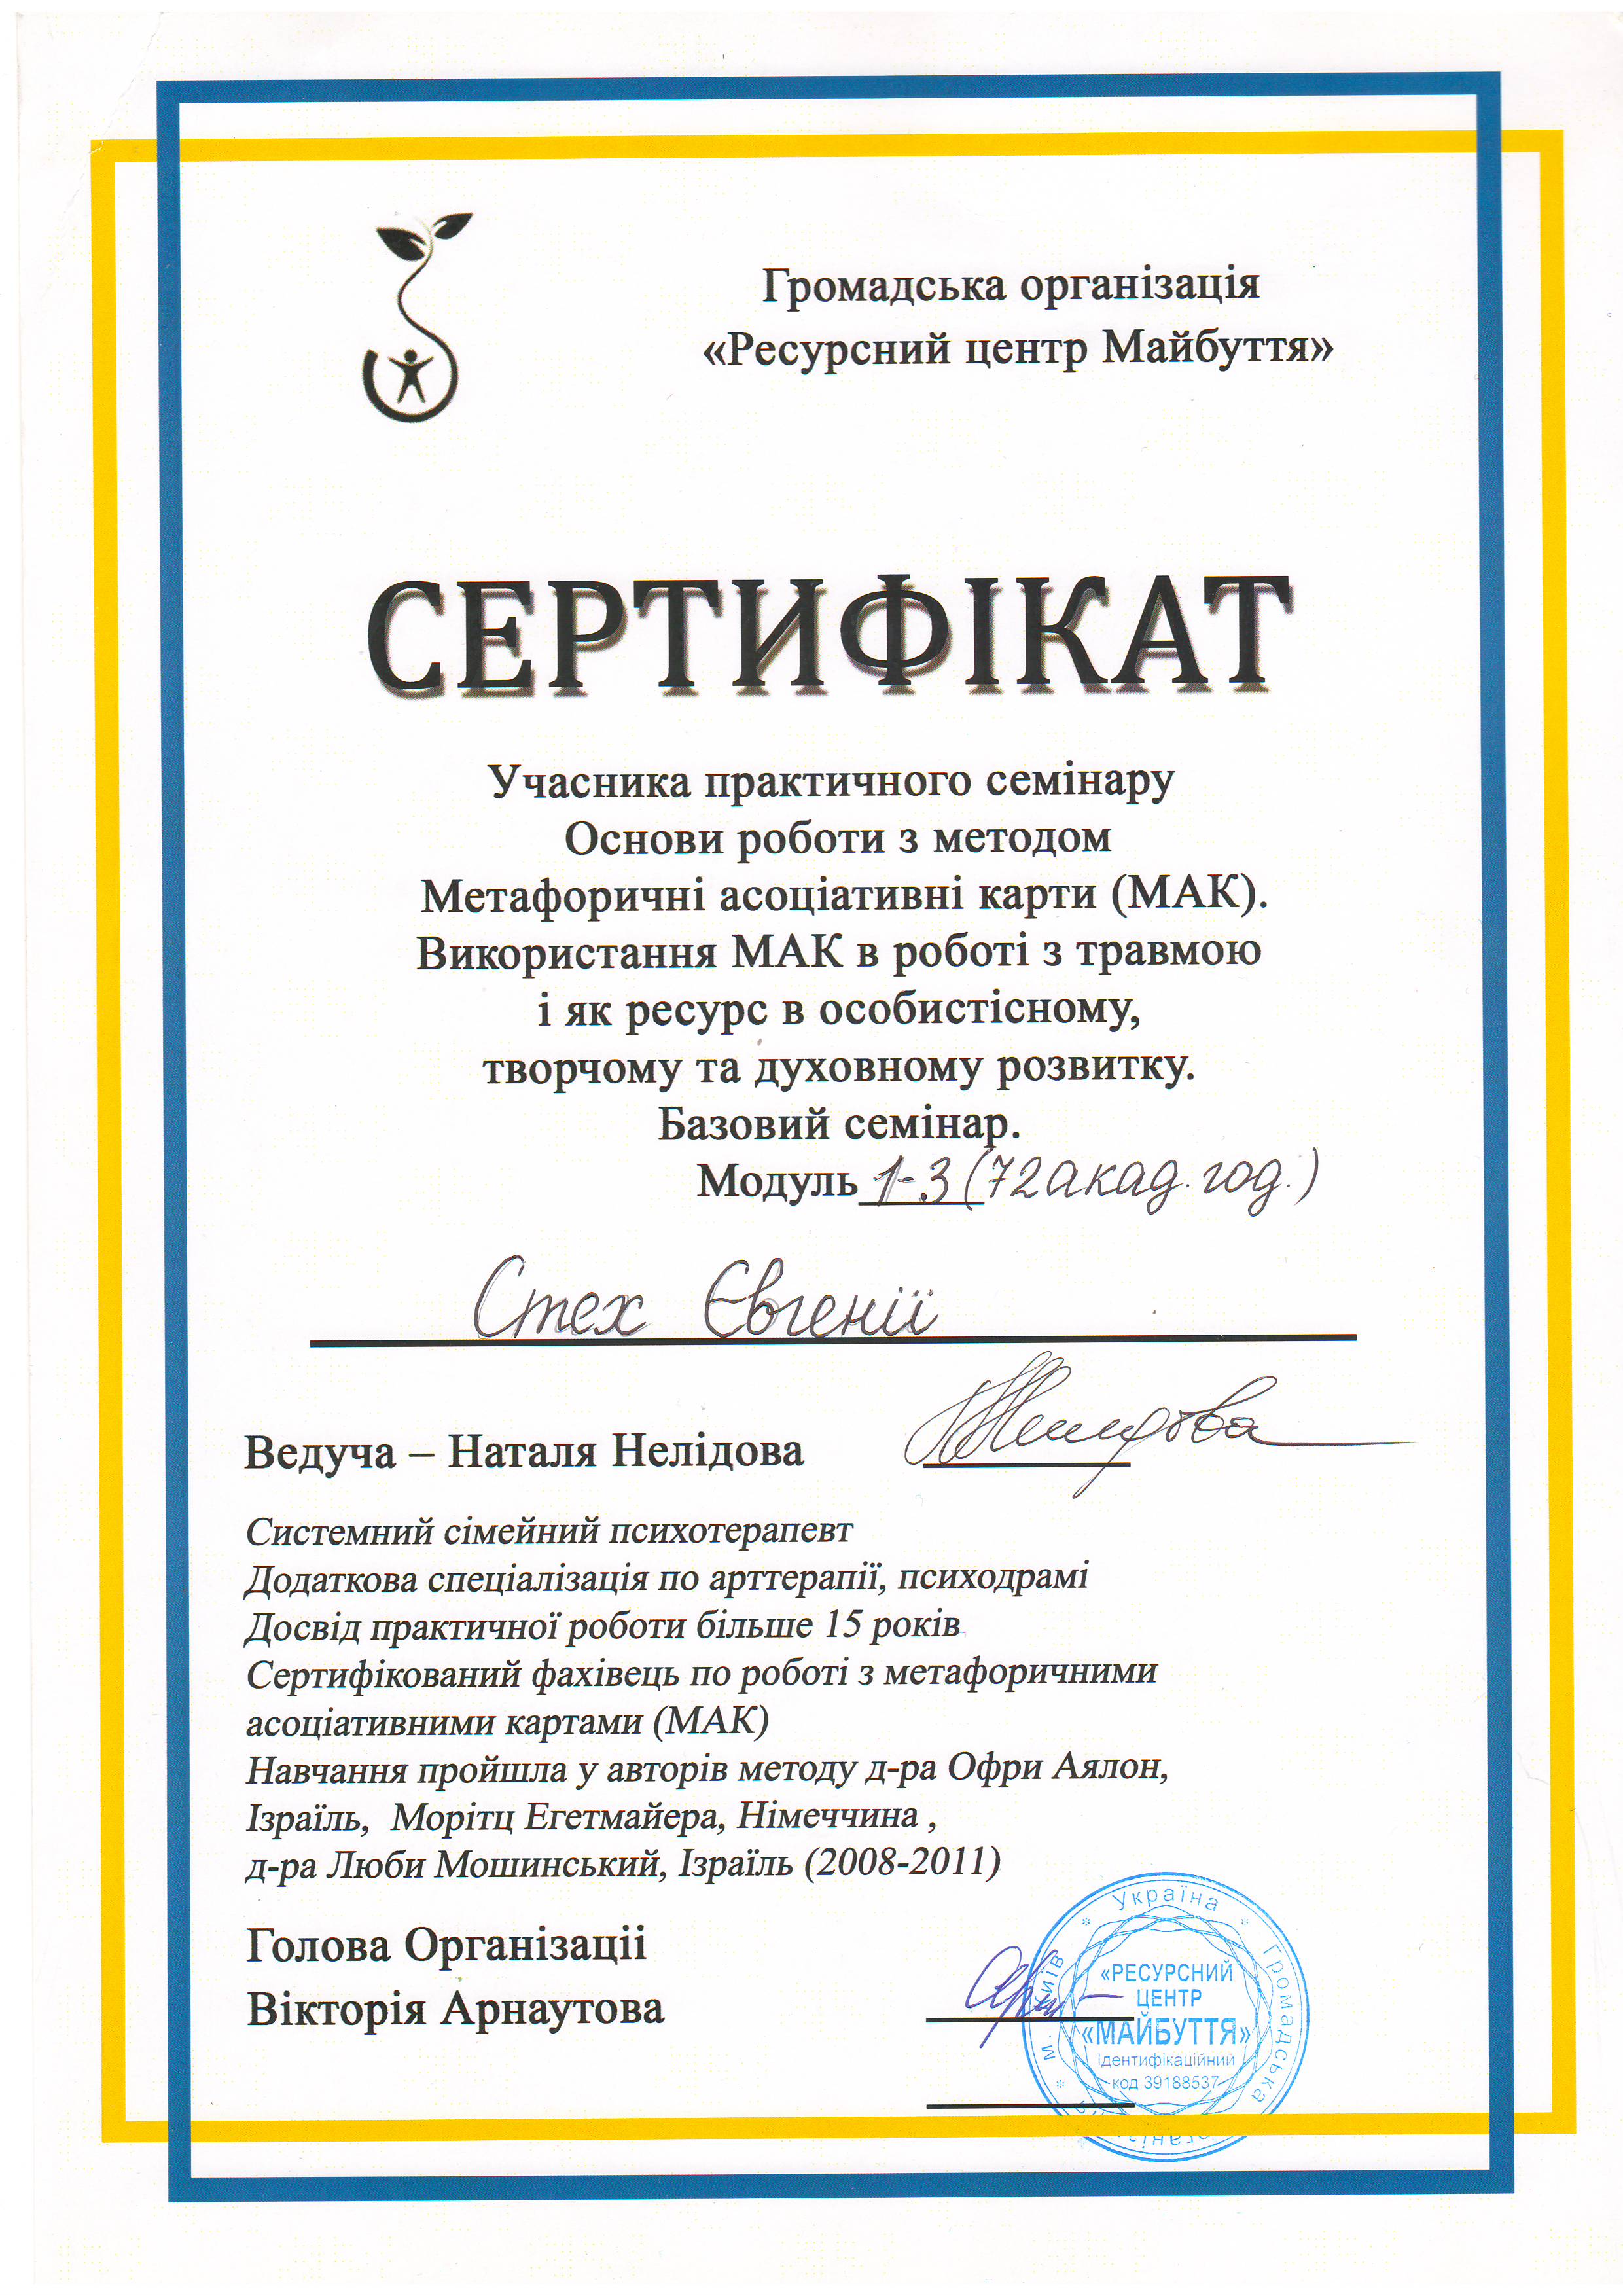 Громадська організація
«Ресурсний центр Майбуття»
СЕРТИФІКАТ
Учасника практичного семінару
Основи роботи з методом
Метафоричні асоціативні карти (МАК).
Використання МАК в роботі з травмою
і як ресурс в особистісному,
творчому та духовному розвитку.
Базовий семінар.
Модуль 1-3 (72 акад. год.)
Стех Євгенії
Ведуча – Наталя Нелідова
Системний сімейний психотерапевт
Додаткова спеціалізація по арттерапії, психодрамі
Досвід практичної роботи більше 15 років
Сертифікований фахівець по роботі з метафоричними
асоціативними картами (МАК)
Навчання пройшла у авторів методу д-ра Офри Аялон,
Ізраїль, Морітц Егетмайера, Німеччина ,
д-ра Люби Мошинський, Ізраїль (2008-2011)
Голова Організаціі
Вікторія Арнаутова
Україна * Громадська
м. Київ
«РЕСУРСНИЙ
ЦЕНТР
«МАЙБУТТЯ»
Ідентифікаційний
код 39188537